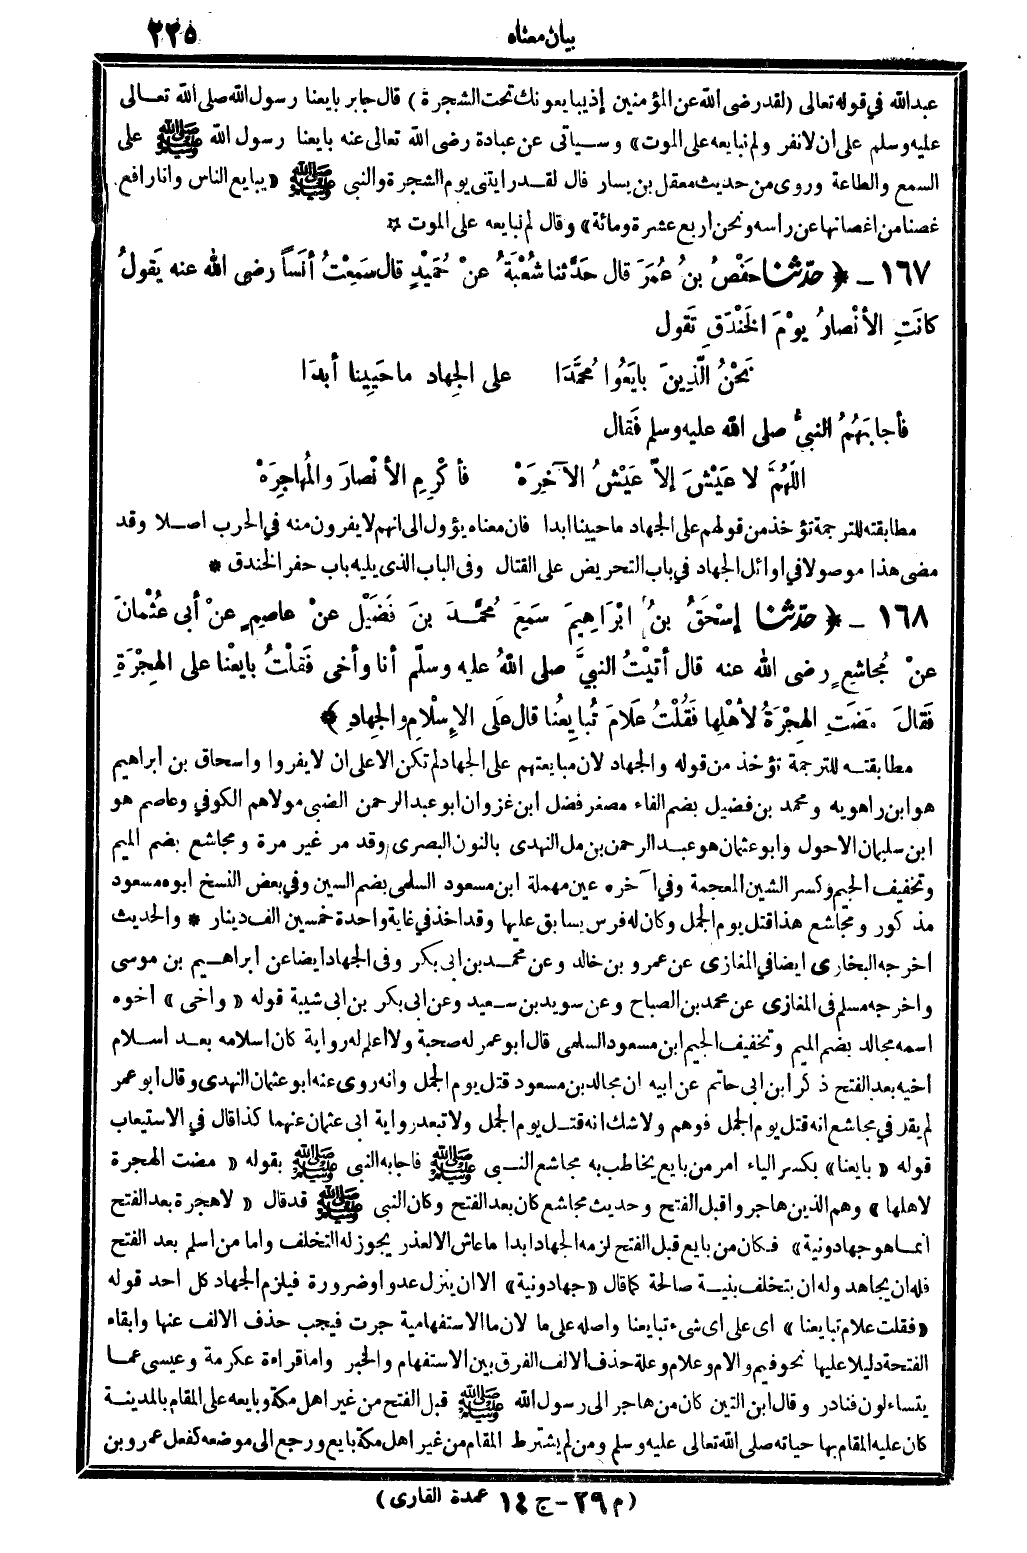 بيان معناه ٢٢٥
عبدالله في قوله تعالى (لقد رضى الله عن المؤمنين إذ يبايعونك تحت الشجرة) قال جابر بايعنا رسول الله صلى الله تعالى
عليه وسلم على أن لانفر ولم نبايعه على الموت» وسيأتى عن عبادة رضى الله تعالى عنه بايعنا رسول الله ﷺ على
السمع والطاعة وروى من حديث معقل بن يسار قال لقد رايتنى يوم الشجرة والنبي ﷺ «يبايع الناس وانا رافع
غصنا من اغصانها عن راسه ونحن أربع عشرة ومائة» وقال لم نبايعه على الموت ☆
١٦٧ ـ ﴿ حدّثنا حَفْصُ بنُ عُمَرَ قال حَدَّثنا شُعْبَةُ عنْ حُمَيْدٍ قال سَمِعْتُ أنَساً رضى الله عنه يَقولُ
كانَتِ الأنْصارُ يوْمَ الخَنْدَقِ تَقول
نَحْنُ الَّذِينَ بايَعُوا مُحَمَّدَا على الجِهاد ما حَيِينا أبدَا
فأجابَهُمُ النبيُّ صلى الله عليه وسلم فَقال
اللَّهُمَّ لا عَيْشَ إلاّ عَيْشُ الآخِرَهْ فأكْرِمِ الأنْصارَ والمُهاجِرَهْ
مطابقته للترجمة تؤخذ من قولهم على الجهاد ما حيينا ابدا فان معناه يؤول الى انهم لا يفرون منه في الحرب اصلا وقد
مضى هذا موصولا في اوائل الجهاد في باب التحريض على القتال وفى الباب الذى يليه باب حفر الخندق *
١٦٨ ـ ﴿ حدّثنا إسْحَقُ بنُ ابْرَاهِيمَ سَمِعَ مُحَمَّدَ بنَ فَضَيْل عنْ عاصِمٍ عنْ أبى عُثْمانَ
عنْ مُجاشِعٍ رضى الله عنه قال أتيْتُ النبيَّ صلى اللهُ عليه وسلّم أنا وأخى فَقلْتُ بايعْنا على الهِجْرَةِ
فَقالَ مَضَتِ الهِجْرَةُ لأهْلِها فَقُلْتُ عَلامَ تُبايِعُنا قال عَلَى الإسْلامِ والجِهادِ ﴾
مطابقته للترجمة تؤخذ من قوله والجهاد لان مبايعتهم على الجهاد لم تكن الا على ان لا يفروا واسحاق بن ابراهيم
هو ابن راهويه ومحمد بن فضيل بضم الفاء مصغر فضل ابن غزوان ابو عبد الرحمن الضبى مولاهم الكوفي وعاصم هو
ابن سليمان الاحول وابو عثمان هو عبد الرحمن بن مل النهدى بالنون البصرى وقد مر غير مرة ومجاشع بضم الميم
وتخفيف الجيم وكسر الشين المعجمة وفي آخره عين مهملة ابن مسعود السلمى بضم السين وفي بعض النسخ ابوه مسعود
مذكور ومجاشع هذا قتل يوم الجمل وكان له فرس يسابق عليها وقد اخذ في غاية واحدة خمسين الف دينار * والحديث
اخرجه البخارى ايضا في المغازى عن عمرو بن خالد وعن محمد بن ابى بكر وفى الجهاد ايضا عن ابراهيم بن موسى
واخرجه مسلم في المغازى عن محمد بن الصباح وعن سويد بن سعيد وعن ابى بكر بن ابى شيبة قوله «واخى» أخوه
اسمه مجالد بضم الميم وتخفيف الجيم ابن مسعود السلمى قال ابو عمر له صحبة ولا اعلم له رواية كان اسلامه بعد اسلام
أخيه بعد الفتح ذكر ابن ابى حاتم عن ابيه ان مجالد بن مسعود قتل يوم الجمل وانه روى عنه ابو عثمان النهدى وقال ابو عمر
لم يقر في مجاشع انه قتل يوم الجمل فوهم ولا شك انه قتل يوم الجمل ولا تبعد رواية ابى عثمان عنهما كذا قال في الاستيعاب
قوله «بايعنا» بكسر الياء امر من بايع يخاطب به مجاشع النبى ﷺ فاجابه النبى ﷺ بقوله «مضت الهجرة
لاهلها» وهم الذين هاجروا قبل الفتح وحديث مجاشع كان بعد الفتح وكان النبى ﷺ قد قال «لا هجرة بعد الفتح
انما هو جهاد ونية» فكان من بايع قبل الفتح لزمه الجهاد ابدا ما عاش الا لعذر يجوز له التخلف واما من اسلم بعد الفتح
فله ان يجاهد وله ان يتخلف بنية صالحة كما قال «جهاد ونية» الا ان ينزل عدو او ضرورة فيلزم الجهاد كل احد قوله
«فقلت علام تبايعنا» اى على اى شىء تبايعنا واصله على ما لان ما الاستفهامية جرت فيجب حذف الالف عنها وابقاء
الفتحة دليلا عليها نحو فيم والام وعلام وعلة حذف الالف الفرق بين الاستفهام والخبر واما قراءة عكرمة وعيسى عما
يتساءلون فنادر وقال ابن التين كان من هاجر الى رسول الله ﷺ قبل الفتح من غير اهل مكة وبايعه على المقام بالمدينة
كان عليه المقام بها حياته صلى الله تعالى عليه وسلم ومن لم يشترط المقام من غير اهل مكة بايع ورجع الى موضعه كفعل عمرو بن
(م ٢٩ - ج ١٤ عمدة القارى)